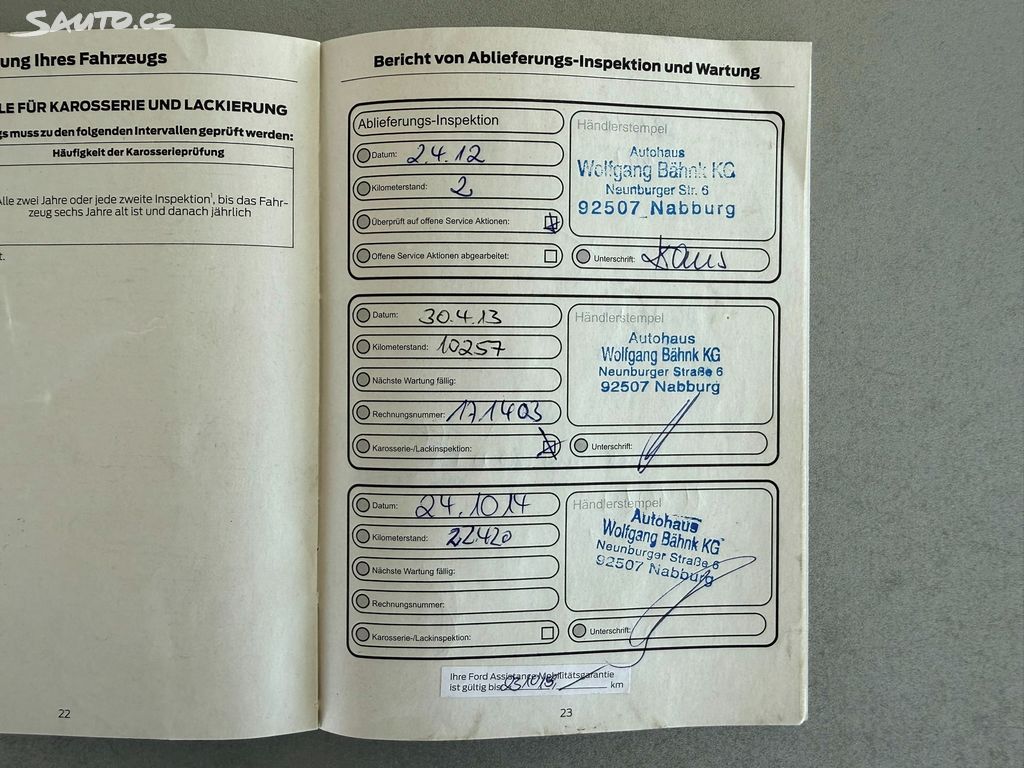 Sauto.cz
ung Ihres Fahrzeugs
LE FÜR KAROSSERIE UND LACKIERUNG
gs muss zu den folgenden Intervallen geprüft werden:
Häufigkeit der Karosserieprüfung
Alle zwei Jahre oder jede zweite Inspektion¹, bis das Fahr-
zeug sechs Jahre alt ist und danach jährlich
t.
22
Bericht von Ablieferungs-Inspektion und Wartung
Ablieferungs-Inspektion
Datum: 2.4.12
Kilometerstand: 2
Überprüft auf offene Service Aktionen:
Offene Service Aktionen abgearbeitet:
Händlerstempel
Autohaus
Wolfgang Bähnk KG
Neunburger Str. 6
92507 Nabburg
Unterschrift:
Datum: 30.4.13
Kilometerstand: 10257
Nächste Wartung fällig:
Rechnungsnummer: 171403
Karosserie-/Lackinspektion:
Händlerstempel
Autohaus
Wolfgang Bähnk KG
Neunburger Straße 6
92507 Nabburg
Unterschrift:
Datum: 24.10 14
Kilometerstand: 22420
Nächste Wartung fällig:
Rechnungsnummer:
Karosserie-/Lackinspektion:
Händlerstempel
Autohaus
Wolfgang Bähnk KG
Neunburger Straße 6
92507 Nabburg
Unterschrift:
Ihre Ford Assistance Mobilitätsgarantie
ist gültig bis km
23